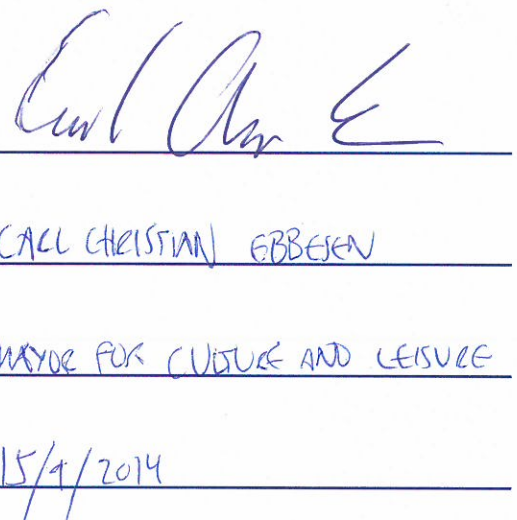 CARL CHRISTIAN EBBESEN
MAYOR FOR CULTURE AND LEISURE
15/9/2014